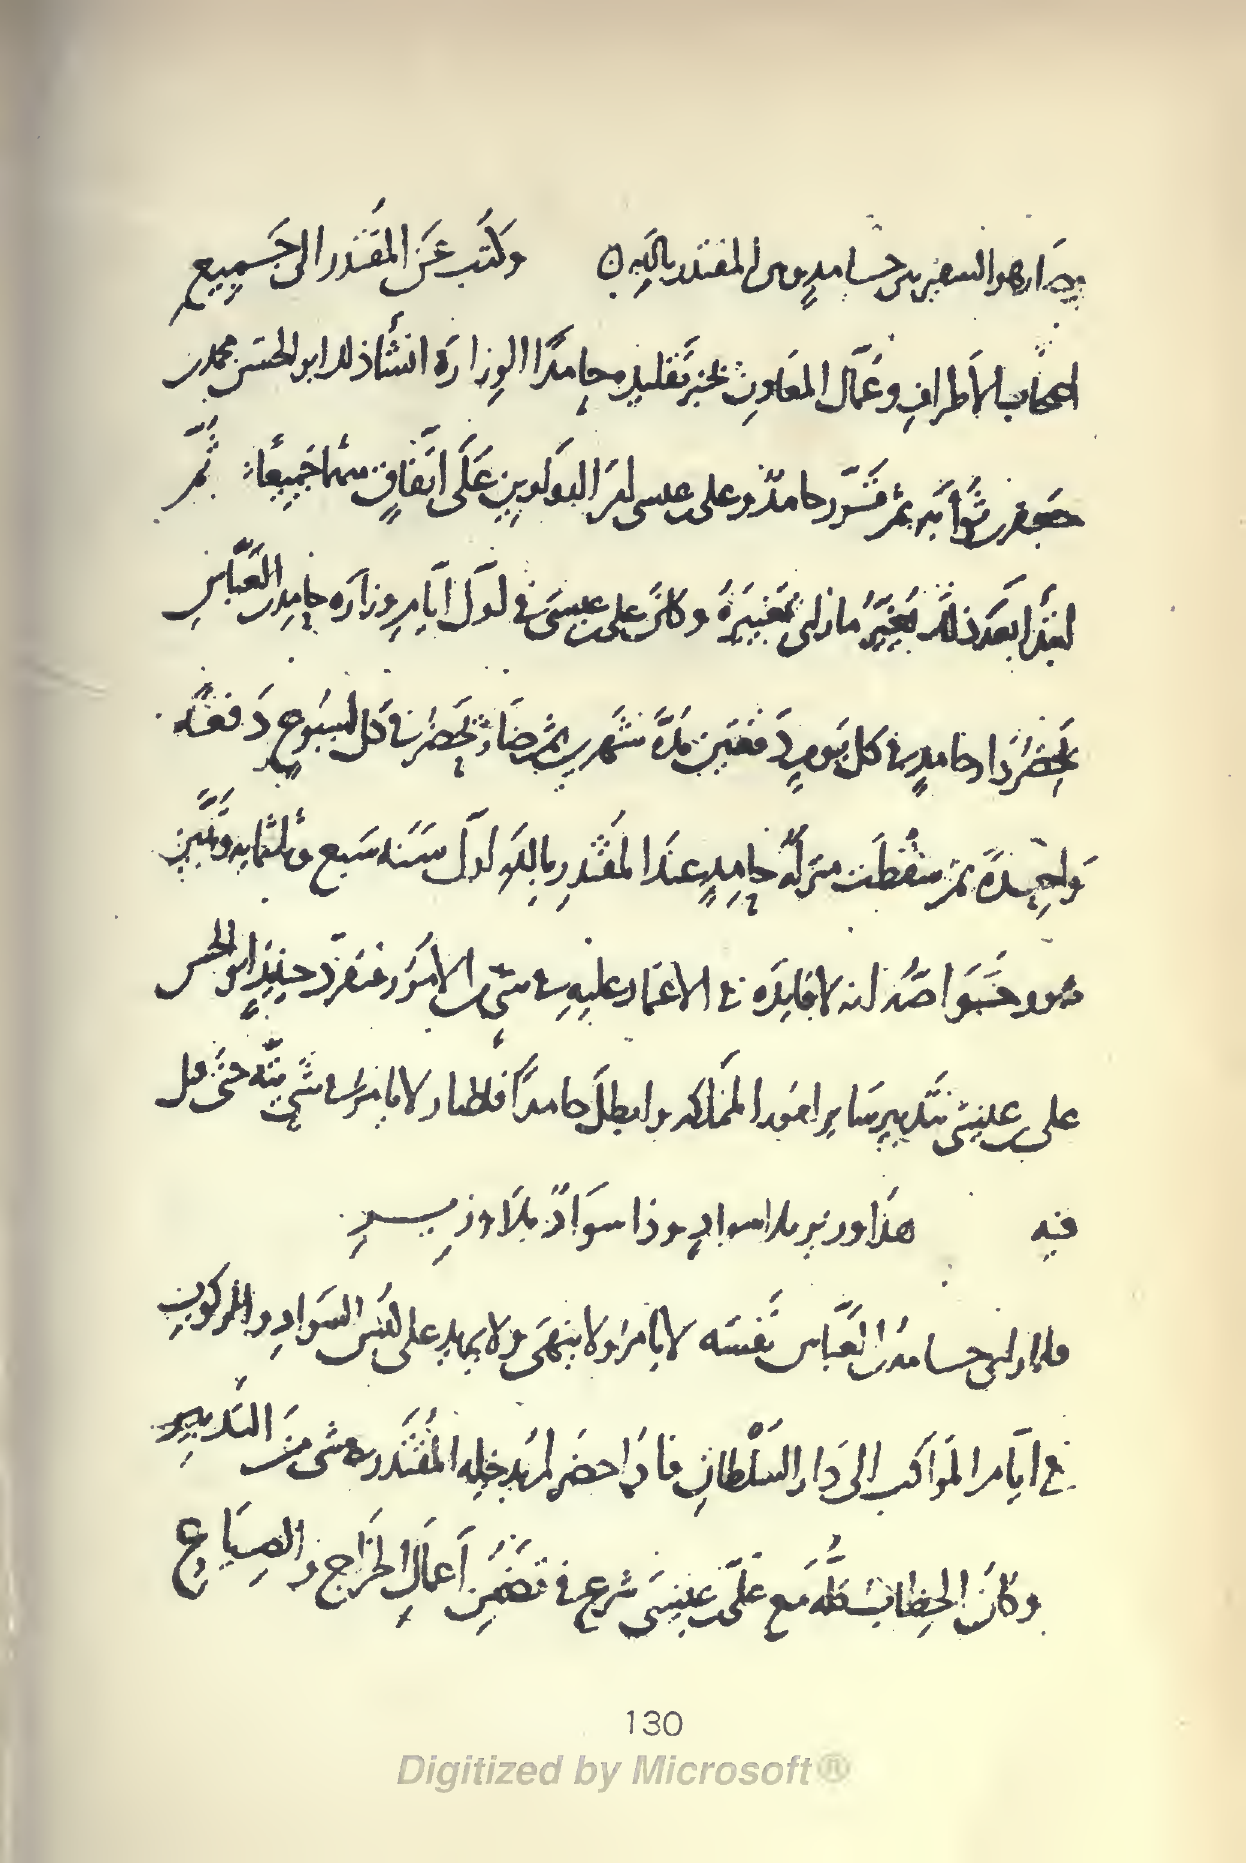 وصار هو السفير بين حامد وبين المقتدر بالله ن وكتب عن المقتدر الى جميع
اصحاب الاطراف وعمال المعاون بخبر تقليد حامدا الوزارة انشأ ذلك ابو الحسن محمد بن
جعفر بن ثوابه ثم قرر حامد وعلى بن عيسى امر على اتفاق منهما جميعا ثم
ابتدأ بعد ذلك بغير ما راى تغييره وكان على بن عيسى فى اول ايام وزارة حامد بن العباس
يحضر دار حامد فى كل يوم دفعتين مدة شهرين ثم صار يحضر فى كل اسبوع دفعة
واحدة ثم سقطت منزلة حامد عند المقتدر بالله اول سنة سبع وثلثمايه وتبين
هو وخواصه انه لا فايدة فى الاعتماد عليه فى شى من الامور فتفرد حينئذ ابو الحسن
على بن عيسى بتدبير ساير امور المملكه وابطل حامدا فصار لا يامر فى شى بته حتى قيل
فيه هذا وزير بلا سواد وذا سواد بلا وزير
فلما راى حامد بن العباس نفسه لا يامر ولا ينهى ولا يزيد على لبس السواد والركوب
فى ايام المواكب الى دار السلطان فاذا حضر لم يدخله المقتدر فى شى من التدبير
وكان الخطاب كله مع على بن عيسى شرع فى تضمن اعمال الخراج والضياع
130
Digitized by Microsoft®